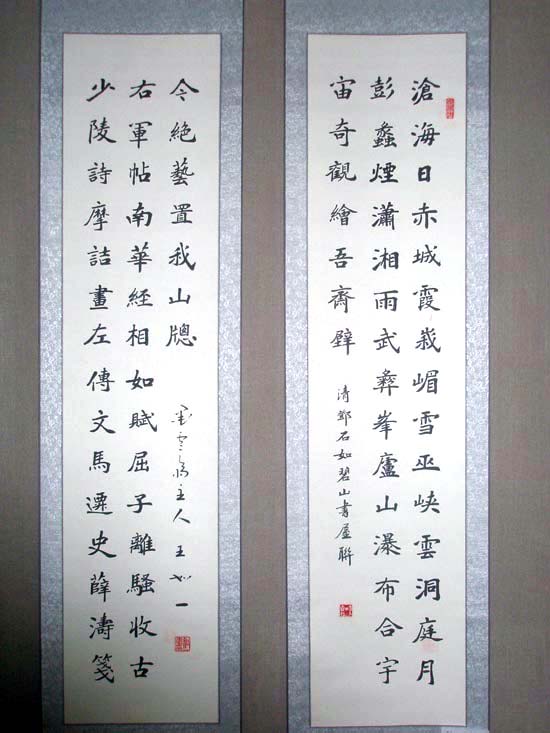 滄海日赤城霞峩嵋雪巫峽雲洞庭月
彭蠡煙瀟湘雨武彝峯廬山瀑布合宇
宙奇觀繪吾齋壁
清鄧石如碧山書屋聯
少陵詩摩詰畫左傳文馬遷史薛濤箋
右軍帖南華經相如賦屈子離騷收古
今絶藝置我山牕
主人王一